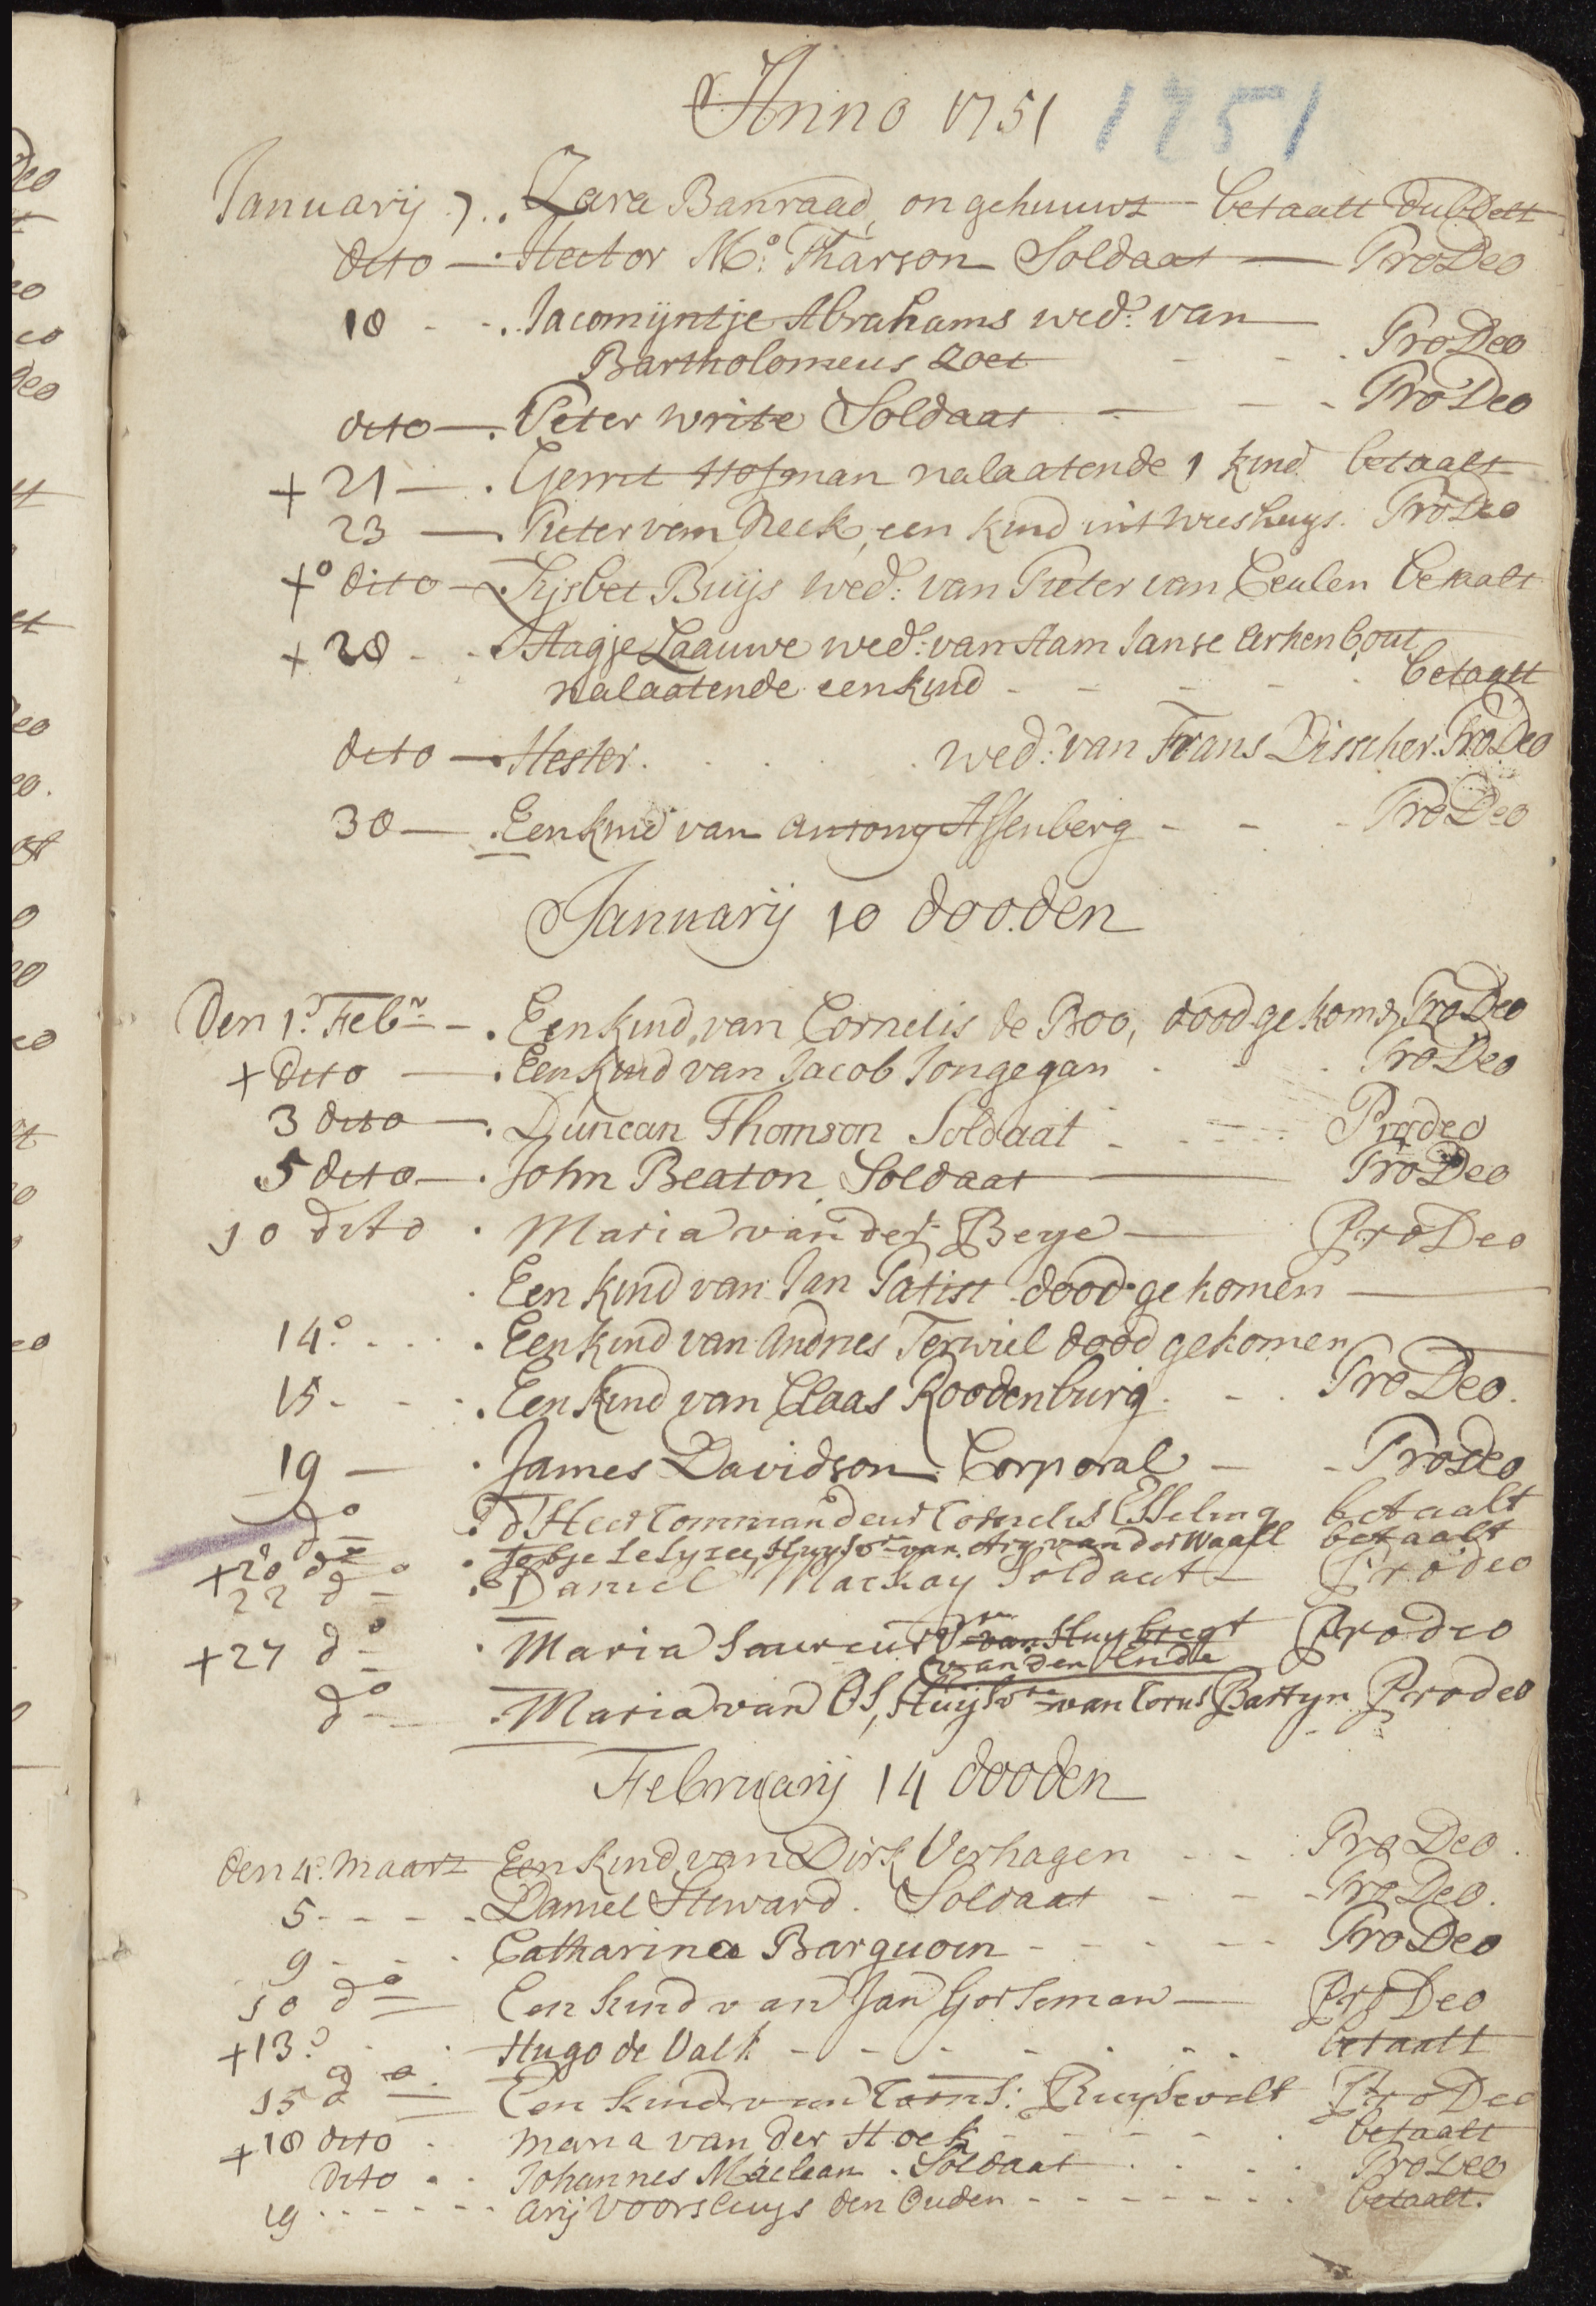 Anno 1751 1751
Januarij 7. Zara Banraad, ongehuuwt betaalt dubbelt
dito Hector Mc. Tharson Soldaat ProDeo
18 Jacomijntje Abrahams wed: van
Bartholomeus Zoet ProDeo
dito Peter Write Soldaat ProDeo
+ 21 Gerrit Hofman nalaatende 1 kind betaalt
23 Pieter van Neck, een kind int weeshuys. ProDeo
+ dito Lijsbet Buijs wed: van Pieter van Ceulen betaalt
+ 28 Aagje Laauwe wed: van Aam Janse Erkenbout
nalaatende een kind betaalt
dito Hester wed: van Frans Disscher. ProDeo
30 Een kind van Antony Assenberg ProDeo
Januarij 10 dooden
Den 1: Feb: Een kind van Cornelis de Boo, dood gekom: ProDeo
+ dito Een kind van Jacob Jongegan ProDeo
3 dito Duncan Thomson Soldaat Prodeo
5 dito John Beaton Soldaat ProDeo
10 dito Maria van der Beye ProDeo
Een kind van Jan Patist dood gekomen
14: Een kind van Andries Terwiel dood gekomen
15 Een kind van Claas Roodenburg ProDeo.
19 James Davidson Corporal ProDeo
do d'Heer Commandeur Cornelis Esseling betaalt
+20 do Huysvr van Ary van der Waall betaalt
22 do Daniel Mackay Soldaat Prodeo
+27 do Maria Saureur Vr van Huybregt Prodeo
van den Ende
do Maria van Os, Huijsvr van Corns Bartyn Prodeo
Februarij 14 dooden
den 4: Maart Een kind van Dirk Verhagen ProDeo.
5 Daniel Steward. Soldaat ProDeo.
9 Catharina Barquoin ProDeo
10 do Een kind van Jan Gorseman ProDeo
+13: Hugo de Valk betaalt
15 do Een kind van Corns: Ruysevelt ProDeo
+18 dito Maria van der Hoek betaalt
dito Johannes Maclean. Soldaat ProDeo
19 Arij Voorsluys den Ouden betaalt.